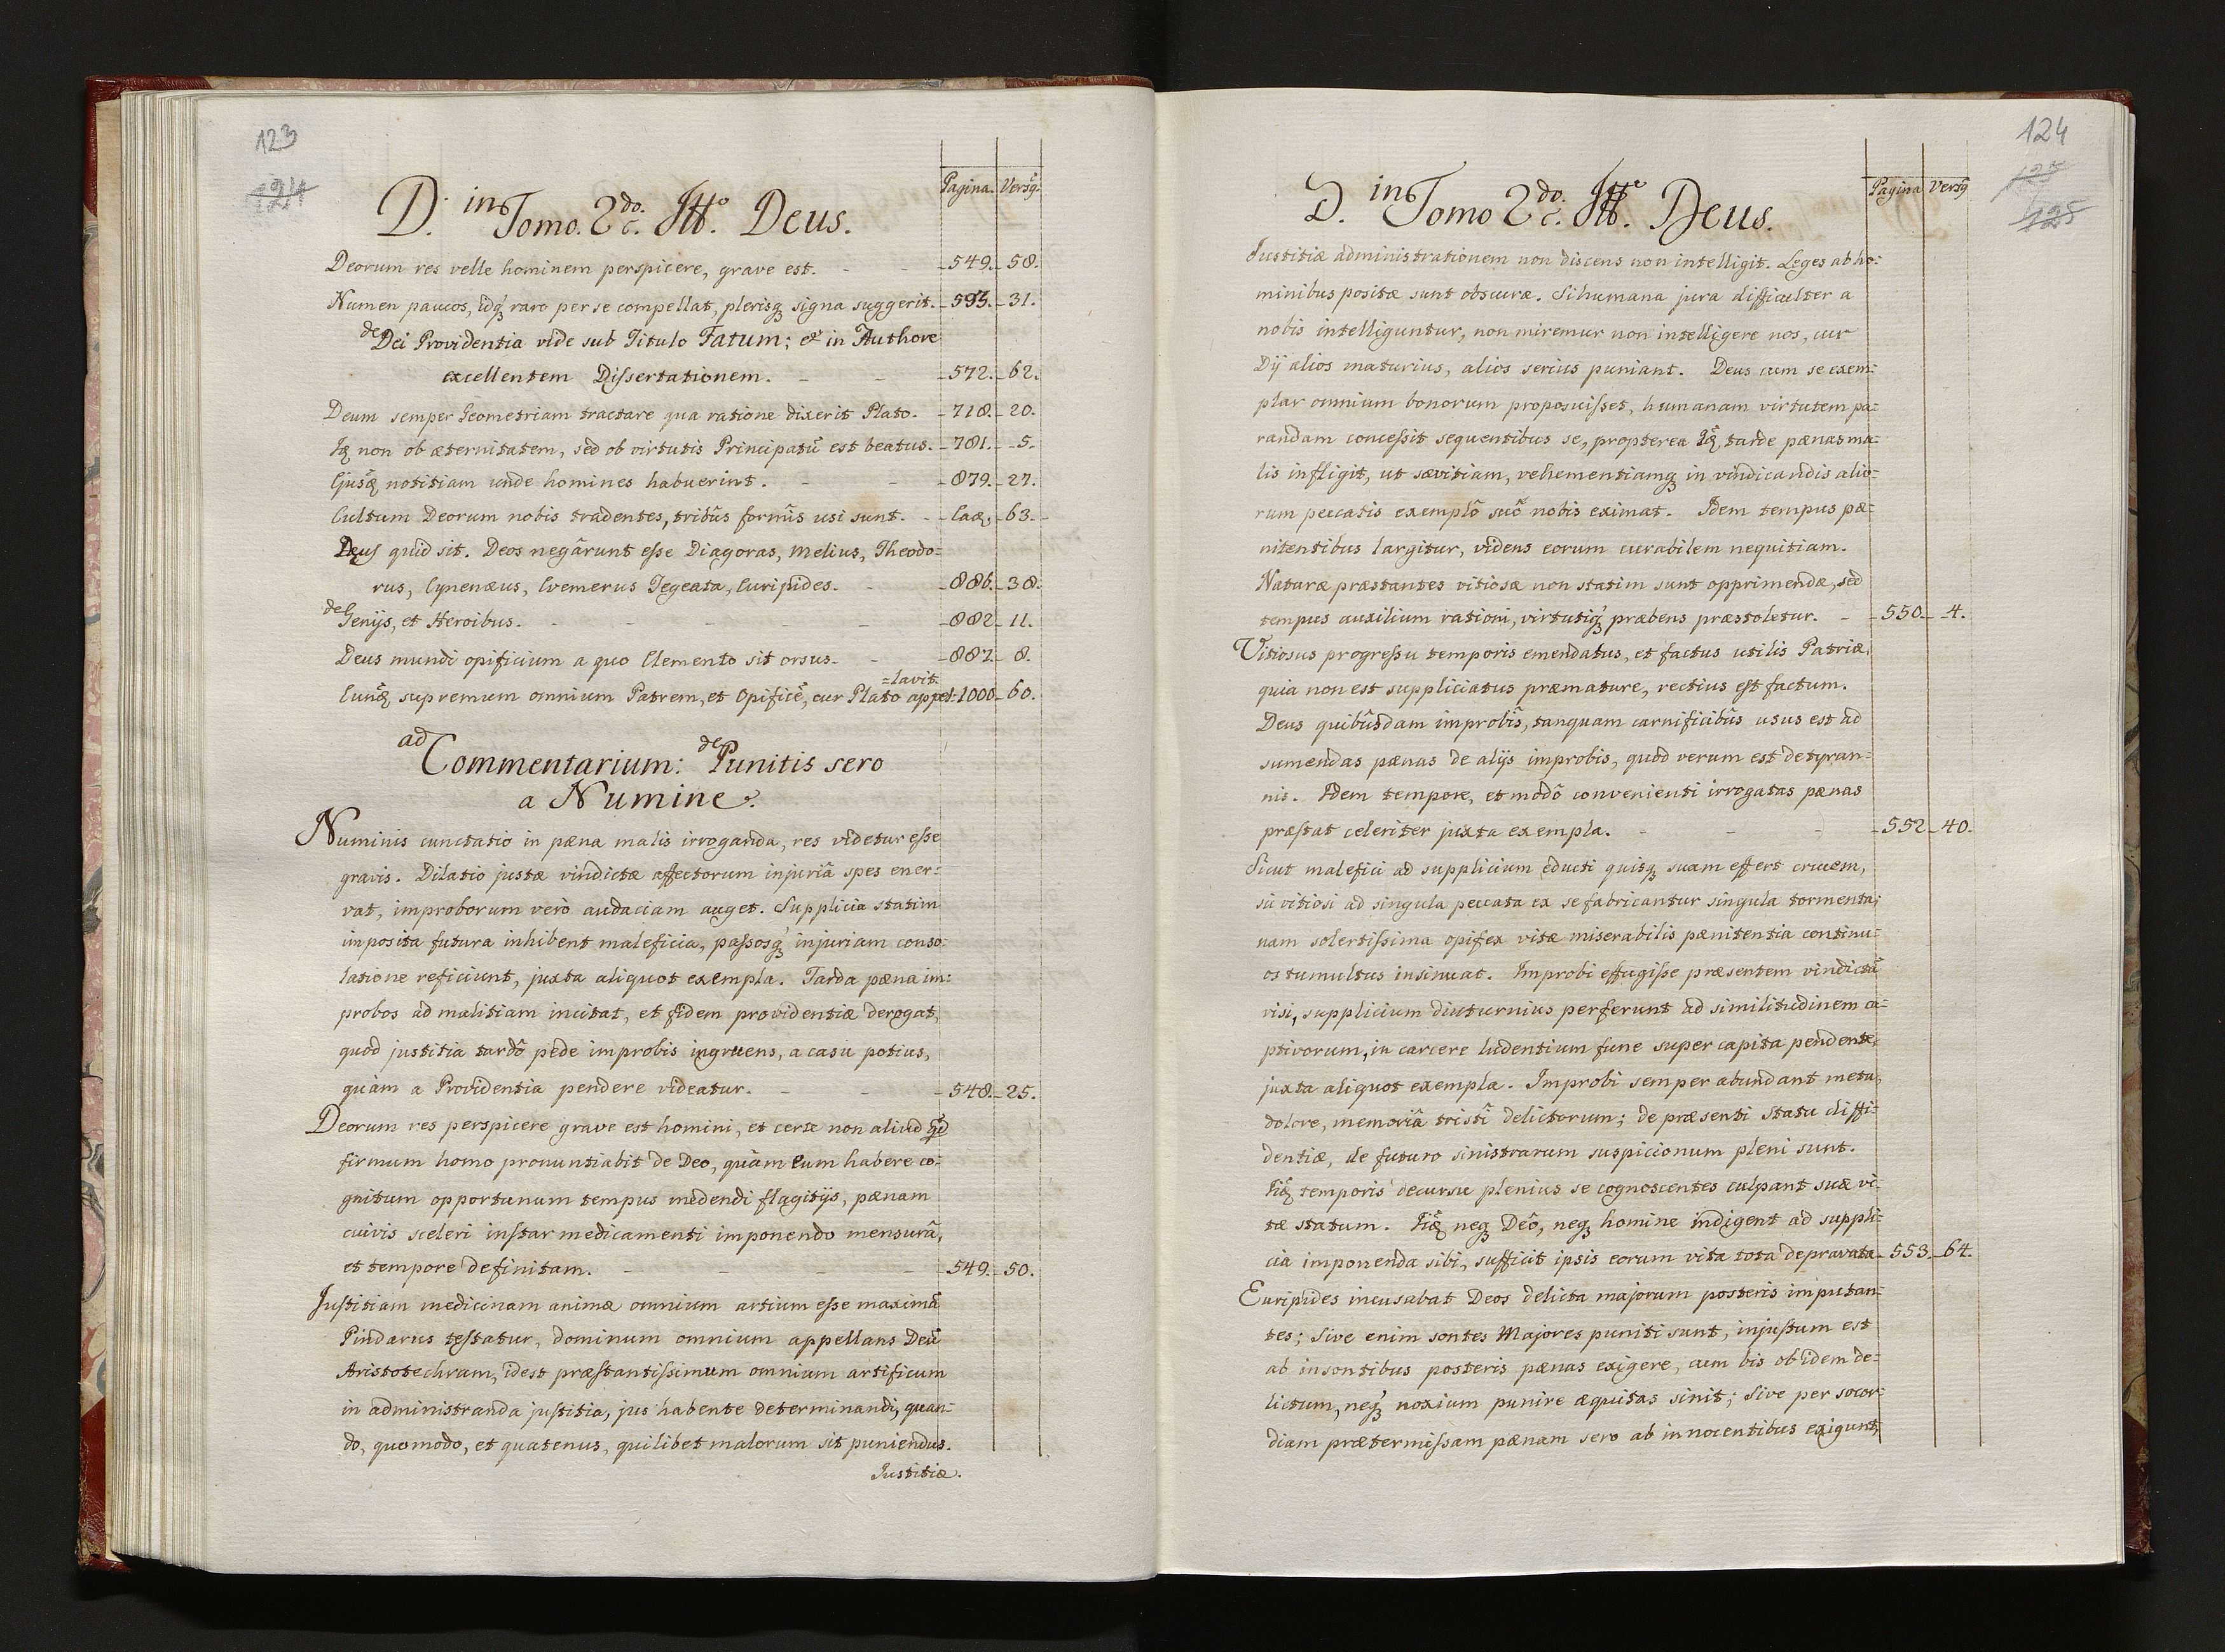 123
124
Pagina. Versq.
D. in Tomo. 2do. Ttt.o Deus.
Deorum res velle hominem perspicere, grave est. - - 549. - 58.
Numen paucos, idq raro per se compellat, plerisq signa suggerit. - 593. - 31.
de Dei Providentia vide sub Titulo Fatum; et in Authore
excellentem Dissertationem. - - 572. - 62.
Deum semper Geometriam tractare qua ratione dixerit Plato. - 718. - 20.
non ob æternitatem, sed ob virtutis Principatũ est beatus. - 781. - 5.
Ejusq notitiam unde homines habuerint. - - 879. - 27.
Cultum Deorum nobis tradentes, tribûs formîs usi sunt. - - 63. -
Deus quid sit. Deos negârunt esse Diagoras, Melius, Theodo=
rus, Cynenæus, Evemerus Tegeata, Euripides. - - 886. - 38.
de Genijs, et Heroibus. - - - - - 882 - 11.
Deus mundi opificium a quo Elemento sit orsus. - - 887. - 8.
=lavit.
Eunq supremum omnium Patrem, et Opificẽ, cur Plato appel- 1000 - 60.
ad Commentarium: de Punitis sero
a Numine.
Numinis cunctatio in pæna malis irroganda, res videtur esse
gravis. Dilatio justæ vindictæ affectorum injuriâ spes ener=
vat, improborum verò audaciam auget. Supplicia statim
imposita futura inhibent maleficia, passosq injuriam conso=
latione reficiunt, juxta aliquot exempla. Tarda pæna im=
probos ad malitiam incitat, et fidem providentiæ derogat,
quod justitia tardô pede improbis ingruens, a casu potius,
quàm a Providentia pendere videatur. - - - 548. - 25.
Deorum res perspicere grave est homini, et certe non aliud qd
firmum homo pronuntiabit de Deo, quàm Eum habere co=
gnitum opportunum tempus medendi flagitijs, pænam
cuivis sceleri instar medicamenti imponendo mensurâ,
et tempore definitam. - - - - - 549. - 50.
Justitiam medicinam animæ omnium artium esse maximã
Pindarus testatur, dominum omnium appellans Deũ
Aristotechram, idest præstantissimum omnium artificum
in administranda justitia, jus habente determinandi, quan=
do, quomodo, et quatenus, quilibet malorum sit puniendus.
Justitiæ.
124
125
Pagina Versq
D. in Tomo 2do. Ttt.o Deus.
Justitiæ administrationem non discens non intelligit. Leges ab ho=
minibus positæ sunt obscuræ. Si humana jura difficulter a
nobis intelliguntur, non miremur non intelligere nos, cur
Dij alios maturius, alios serius puniant. Deus cum se exem=
plar omnium bonorum proposuisset, humanam virtutem pa=
randam concessit sequentibus se, propterea tarde pænas ma=
lis infligit, ut sævitiam, vehementiamq in vindicandis alio=
rum peccatis exemplô suô nobis eximat. Idem tempus pæ=
nitentibus largitur, videns eorum curabilem nequitiam.
Naturæ præstantes vitiosæ non statim sunt opprimendæ, sed
tempus auxilium rationi, virtutiq præbens præstoletur. - - 550. - 4.
Vitiosus progressu temporis emendatus, et factus utilis Patriæ,
quia non est suppliciatus præmature, rectius est factum.
Deus quibûsdam improbîs, tanquam carnificibûs usus est ad
sumendas pænas de alijs improbis, quod verum est de tyran=
nis. Idem tempore, et modô convenienti irrogatas pænas
præstat celeriter juxta exempla. - - - - 552 - 40.
Sicut malefici ad supplicium educti quisq suam effert crucem,
sic vitiosi ad singula peccata ex se fabricantur singula tormenta;
nam solertissima opifex vitæ miserabilis pænitentia continu=
os tumultus insinuat. Improbi effugisse præsentem vindictã
visi, supplicium diuturnius perferunt ad similitudinem ca=
ptivorum, in carcere ludentium fune super capita pendente,
juxta aliquot exempla. Improbi semper abundant metu,
dolore, memoriâ tristî delictorum; de præsenti statu diffi=
dentiæ, de futuro sinistrarum suspicionum pleni sunt.
Iiq temporis decursu plenius se cognoscentes culpant suæ vi=
tæ statum. Iiq neq Deô, neq homine indigent ad suppli=
cia imponenda sibi, sufficit ipsis eorum vita tota depravata - 553. - 64.
Euripides incusabat Deos delicta majorum posteris imputan=
tes; Sive enim sontes Majores puniti sunt, injustum est
ab insontibus posteris pænas exigere, cum bis ob idem de=
lictum, neq noxium punire æquitas sinit; Sive per socor=
diam prætermissam pænam sero ab innocentibus exigunt,